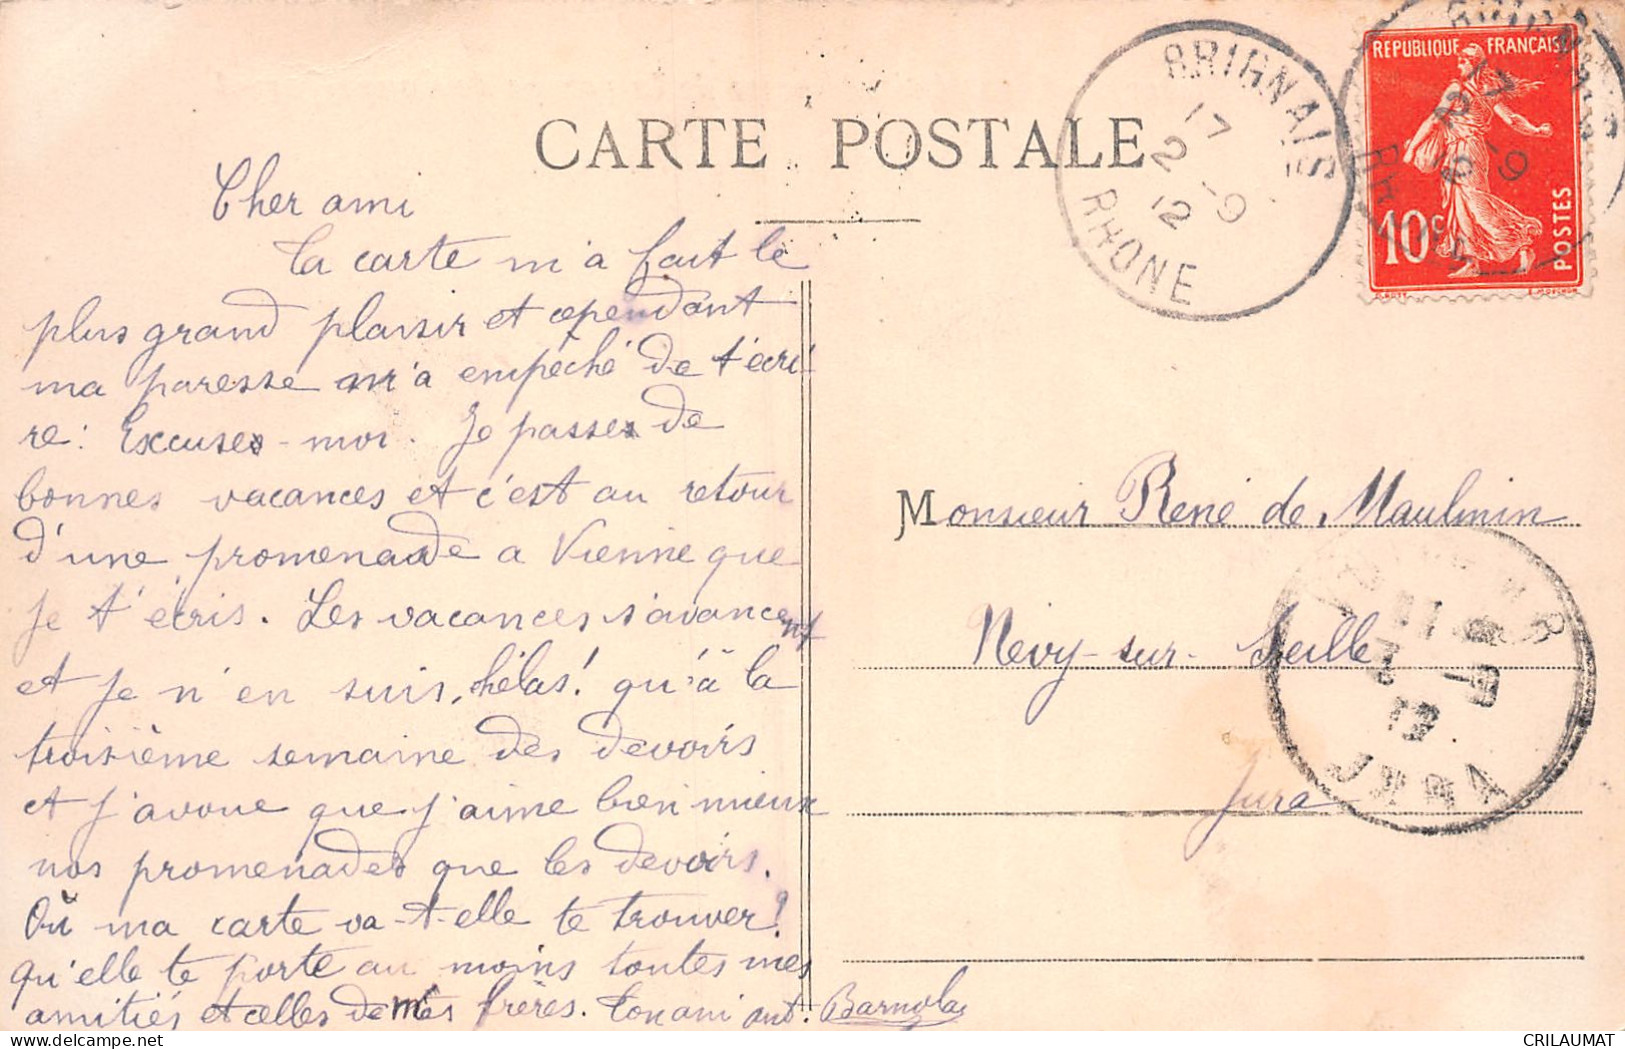 CARTE POSTALE
BRIGNAIS
17
2 -9
12
RHONE
REPUBLIQUE FRANÇAISE
10c
POSTES
Cher ami
Ta carte m'a fait le
plus grand plaisir et cependant
ma paresse m'a empêché de t'écri
re: Excuses-moi. Je passe de
bonnes vacances et c'est au retour
d'une promenade a Vienne que
je t'écris. Les vacances s'avancent
et je n'en suis, hélas! qu'à la
troisième semaine des devoirs
et j'avoue que j'aime bien mieux
nos promenades que les devoirs.
Où ma carte va-t-elle te trouver?
qu'elle te porte au moins toutes mes
amitiés et celles de mes frères. Ton ami ant. Barnola
Monsieur René de Maulmin
Nevy-sur-Seille
Jura
CRILAUMAT